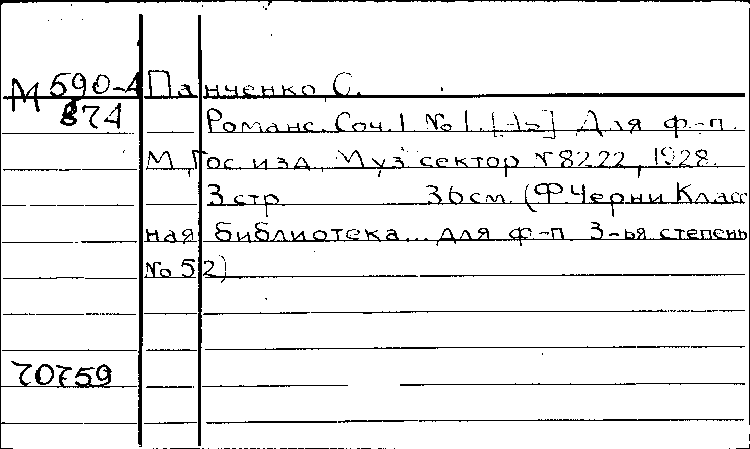 М 590-4
874
Панченко, С.
Романс. Соч. 1 № 1. [As] Для ф-п.
М., Гос. изд., Муз сектор N 8222, 1928.
3 стр. 36 см. (Ф. Черни Класс
ная библиотека... для ф-п. 3-ья степень
№ 52)
70759